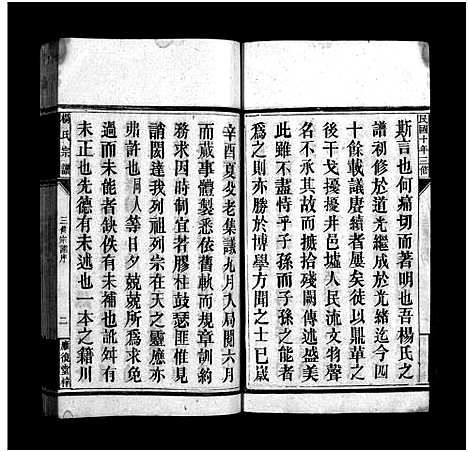 民國十年三修
斯言也何痛切而著明也吾楊氏之
譜初修於道光繼成於光緒迄今四
十餘載議賡續者屢矣徒以鼎革之
後干戈擾攘井邑墟人民流文物聲
名不承其故而摭拾殘闕傳述盛美
此雖不盡恃乎子孫而子孫之能者
爲之則亦勝於博學方聞之士已歲
辛酉夏父老集議九月入局閱六月
而蕆事體製悉依舊軌而規章訓約
務求因時制宜若膠柱鼓瑟匪惟見
誚閎達我列祖列宗在天之靈應亦
弗許也 人等日夕兢兢所爲求免
過而未能者缺佚有未補也訛舛有
未正也先德有未述也一本之籍川
楊氏宗譜
三修宗譜序
二